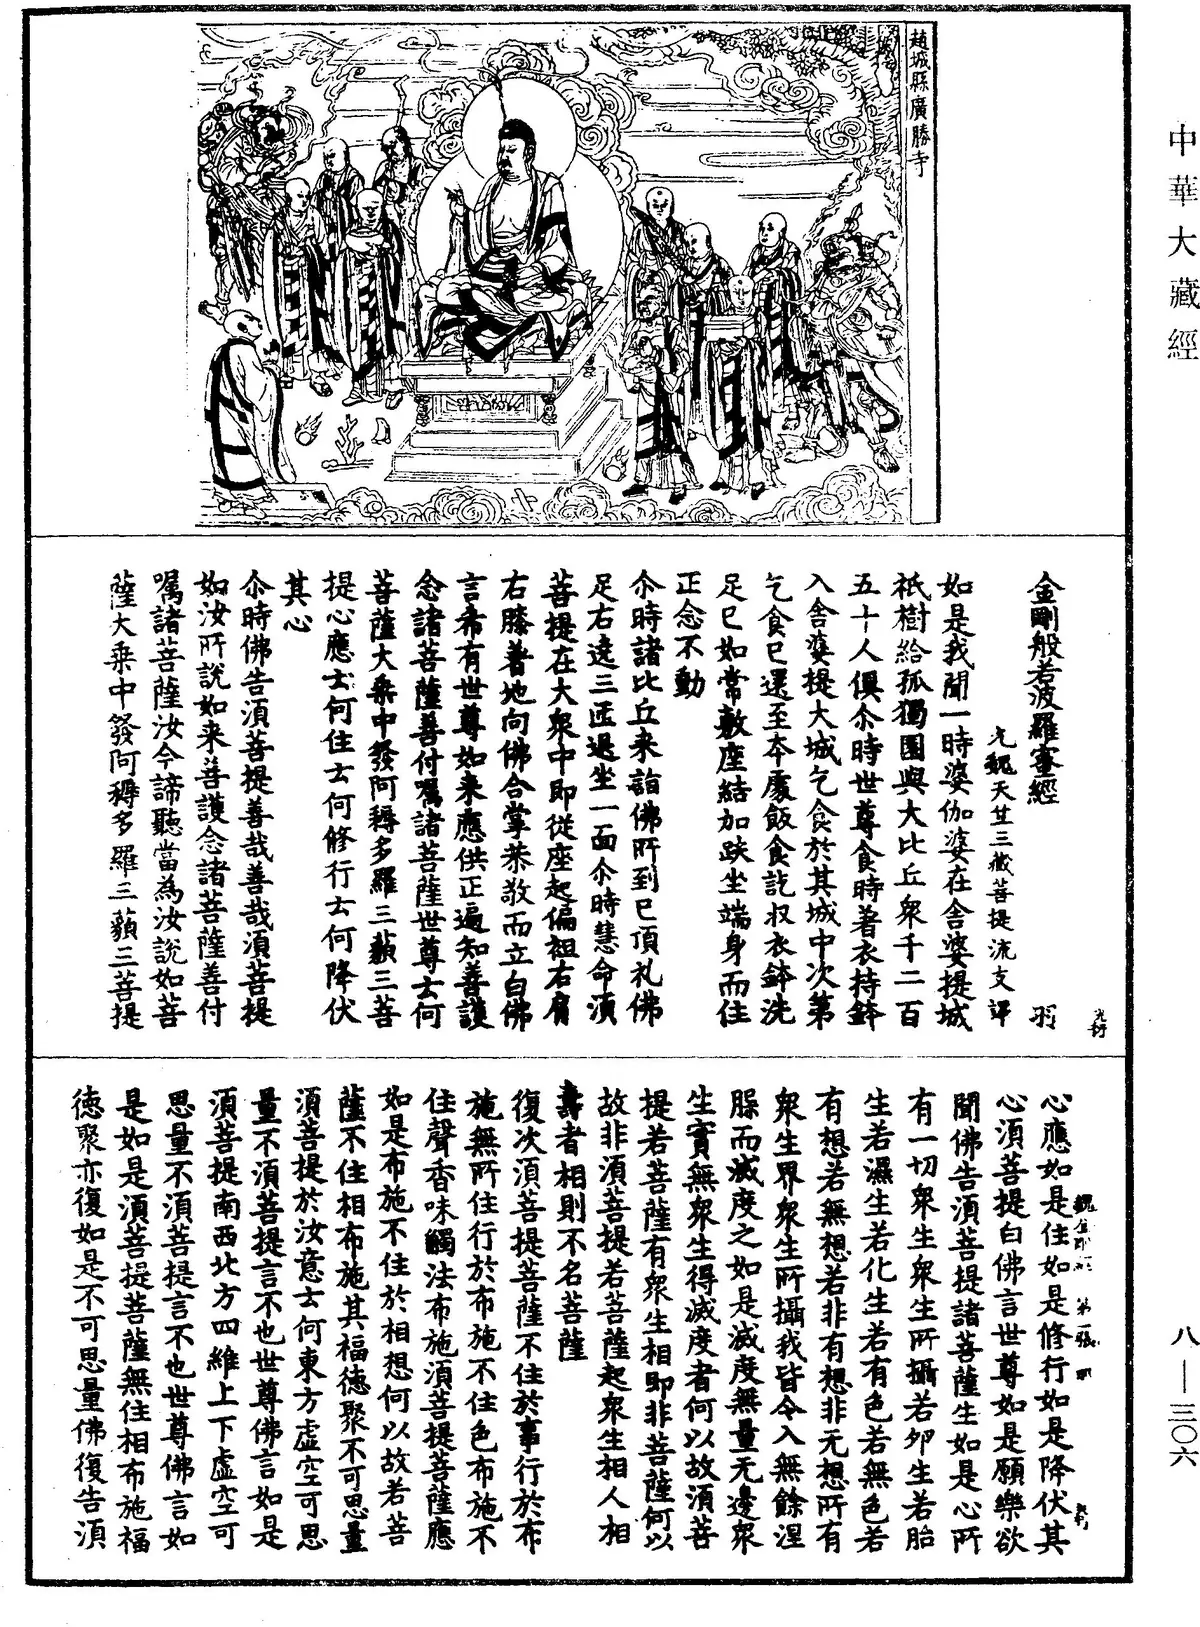 中華大藏經
八—三〇六
趙城縣廣勝寺
金剛般若波羅蜜經 羽
元魏天竺三藏菩提流支譯
如是我聞一時婆伽婆在舍婆提城
祇樹給孤獨園與大比丘衆千二百
五十人俱尒時世尊食時著衣持鉢
入舍婆提大城乞食於其城中次第
乞食已還至本處飯食訖收衣鉢洗
足已如常敷座結加趺坐端身而住
正念不動
尒時諸比丘来詣佛所到已頂礼佛
足右遶三匝退坐一面尒時慧命須
菩提在大衆中即從座起偏袒右肩
右膝著地向佛合掌恭敬而立白佛
言希有世尊如来應供正遍知善護
念諸菩薩善付囑諸菩薩世尊云何
菩薩大乗中發阿耨多羅三藐三菩
提心應云何住云何修行云何降伏
其心
尒時佛告須菩提善哉善哉須菩提
如汝所說如来善護念諸菩薩善付
囑諸菩薩汝今諦聽當為汝說如菩
薩大乗中發阿耨多羅三藐三菩提
心應如是住如是修行如是降伏其
心須菩提白佛言世尊如是願樂欲
聞佛告須菩提諸菩薩生如是心所
有一切衆生衆生所攝若卵生若胎
生若濕生若化生若有色若無色若
有想若無想若非有想非无想所有
衆生界衆生所攝我皆令入無餘涅
槃而滅度之如是滅度無量无邊衆
生實無衆生得滅度者何以故須菩
提若菩薩有衆生相即非菩薩何以
故非須菩提若菩薩起衆生相人相
壽者相則不名菩薩
復次須菩提菩薩不住於事行於布
施無所住行於布施不住色布施不
住聲香味觸法布施須菩提菩薩應
如是布施不住於相想何以故若菩
薩不住相布施其福德聚不可思量
須菩提於汝意云何東方虛空可思
量不須菩提言不也世尊佛言如是
須菩提南西北方四維上下虛空可
思量不須菩提言不也世尊佛言如
是如是須菩提菩薩無住相布施福
德聚亦復如是不可思量佛復告須